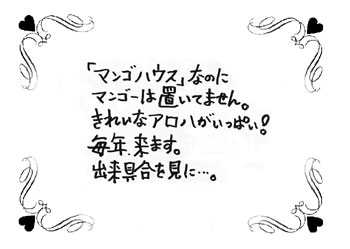 「マンゴハウス」なのに
マンゴーは置いてません。
きれいなアロハがいっぱい!
毎年、来ます。
出来具合を見に…。